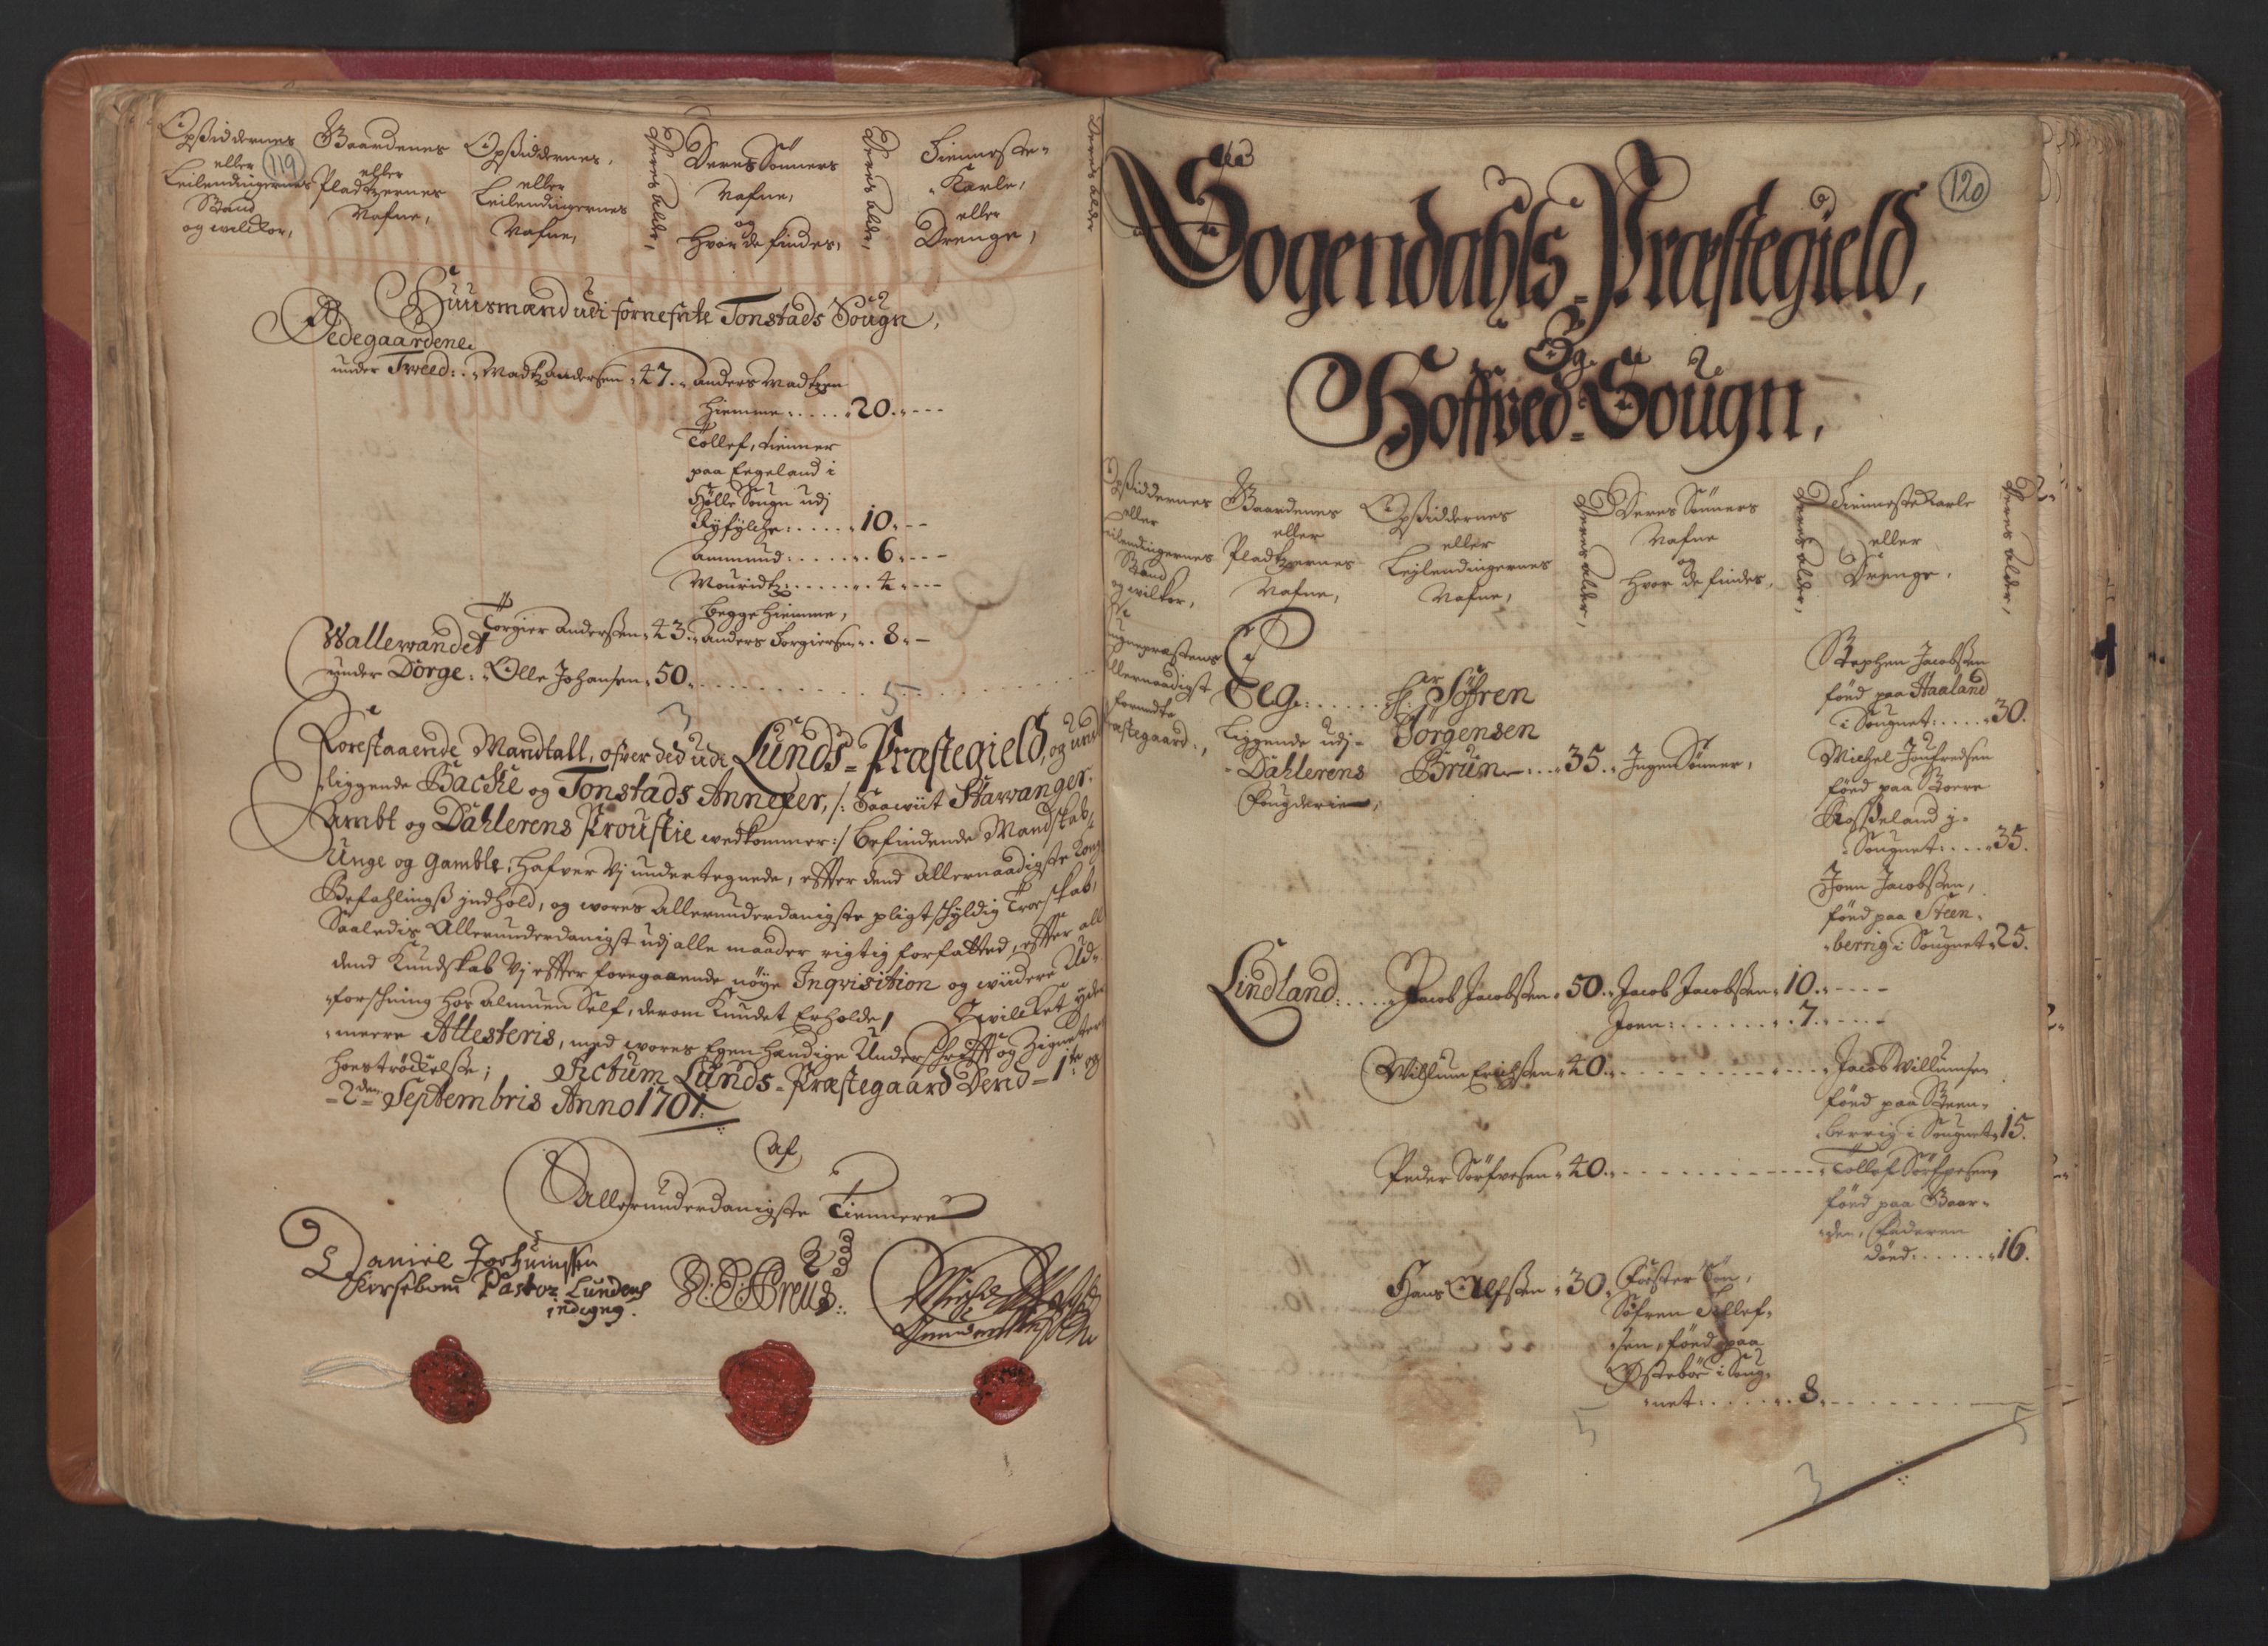 119
Opsiddernes
eller
Leilendingernes
Stand
og wilkor,
Gaardenes
eller
Pladtzernes
Nafne,
Opsiddernes,
eller
Leilendingernes
Nafne,
Deres alder,
Deres Sönners
Nafne,
og
hvor de findes,
Deres alder,
Tienneste-
Karle,
eller
Drenge,
Deres alder
Huusmænd udi fornefnte Tonstads Sougn,
Ödegaardene
under Tveed: Madtz Andersen 47. Anders Madtzen
hiemme: 20.
Tollef, tienner
paa Eegeland i
Hölle Sougn udj
Ryfylche: 10.
Ammund: 6.
Mouridtz: 4.
begge hiemme,
Wallewandet Torgier Anderssen 43. Anders Torgiersen 8.
under Dorge: Olle Johansen 50.
3 5
Forestaaende Mandtall, ofver ded udi Lunds-Præstegield, og und
liggende Backe og Tonstads Annexer, /: Saawiit Stawanger
Ambt og Dahlerens Proustie wedkommer :/ befindende Mandskab,
Unge og Gamble, hafver Vj undertegnede, effter dend Allernaadigste Kong
Befahlingß indhold, og wores Allerunderdanigste pligtschyldig Troeskab,
Saaledis Allerunderdanigst udj alle maader rigtig forfatted, effter all
dend Kundskab Vj effter foregaaende nöye Inqvisition og widere Ud-
forschning hos Almuen Self, derom kundet Erholde, Hvilket yder
meere Attesteris, med wores Egen hændige Underschrifft og Zigneter
hoeströckelse; Actum Lunds-Præstegaard Dend 1te og
2den Septembris Anno 1701.
Af
Allerunderdanigste Tiennere
Daniel Jochumssen
Kirsebom Pastor Lundens
indigng.
120
Sogendahls Præstegield,
Og
Hoffved-Sougn,
Opsiddernes
eller
Leilendingernes
Stand
og wilkor,
Gaardenes
eller
Pladtzernes
Nafne,
Opsiddernes
eller
Lejlendingernes
Nafne,
Deres alder,
Deres Sönners
Nafne
og
hvor de findes,
Deres alder,
Tienneste Karle
eller
Drenge,
Deres alder,
Sognepræstens
Allernaadigst
forundte
Præstegaard,
Eeg: Hr: Söfren
Liggende udj Jörgensen
Dahlerens Bruun 35. Ingen Sönner,
Fougderie,
Stephen Jacobssen
föed paa Haaland
i Sougnet: 30.
Michel Joufredsen
föed paa Store
Rosseland j
Sougnet: 35.
Joen Jacobssen,
föed paa Steen-
berrig i Sougnet 25.
Lindland: Jacob Jacobssen 50. Jacob Jacobssen 10.
Joen: 7.
Willum Erichssen 40. Jacob Willumsen
föed paa Steen-
berrig i Sougnet 15.
Peder Sörfvesen 40. Tollef Sörfvesen
föed paa Gaar-
den, Faderen
död: 16.
Hans Olfssen 30. Foster Sön,
Söfren Tollef-
sen, föed paa
Östeböe i Soug-
net: 8.
5 5
3